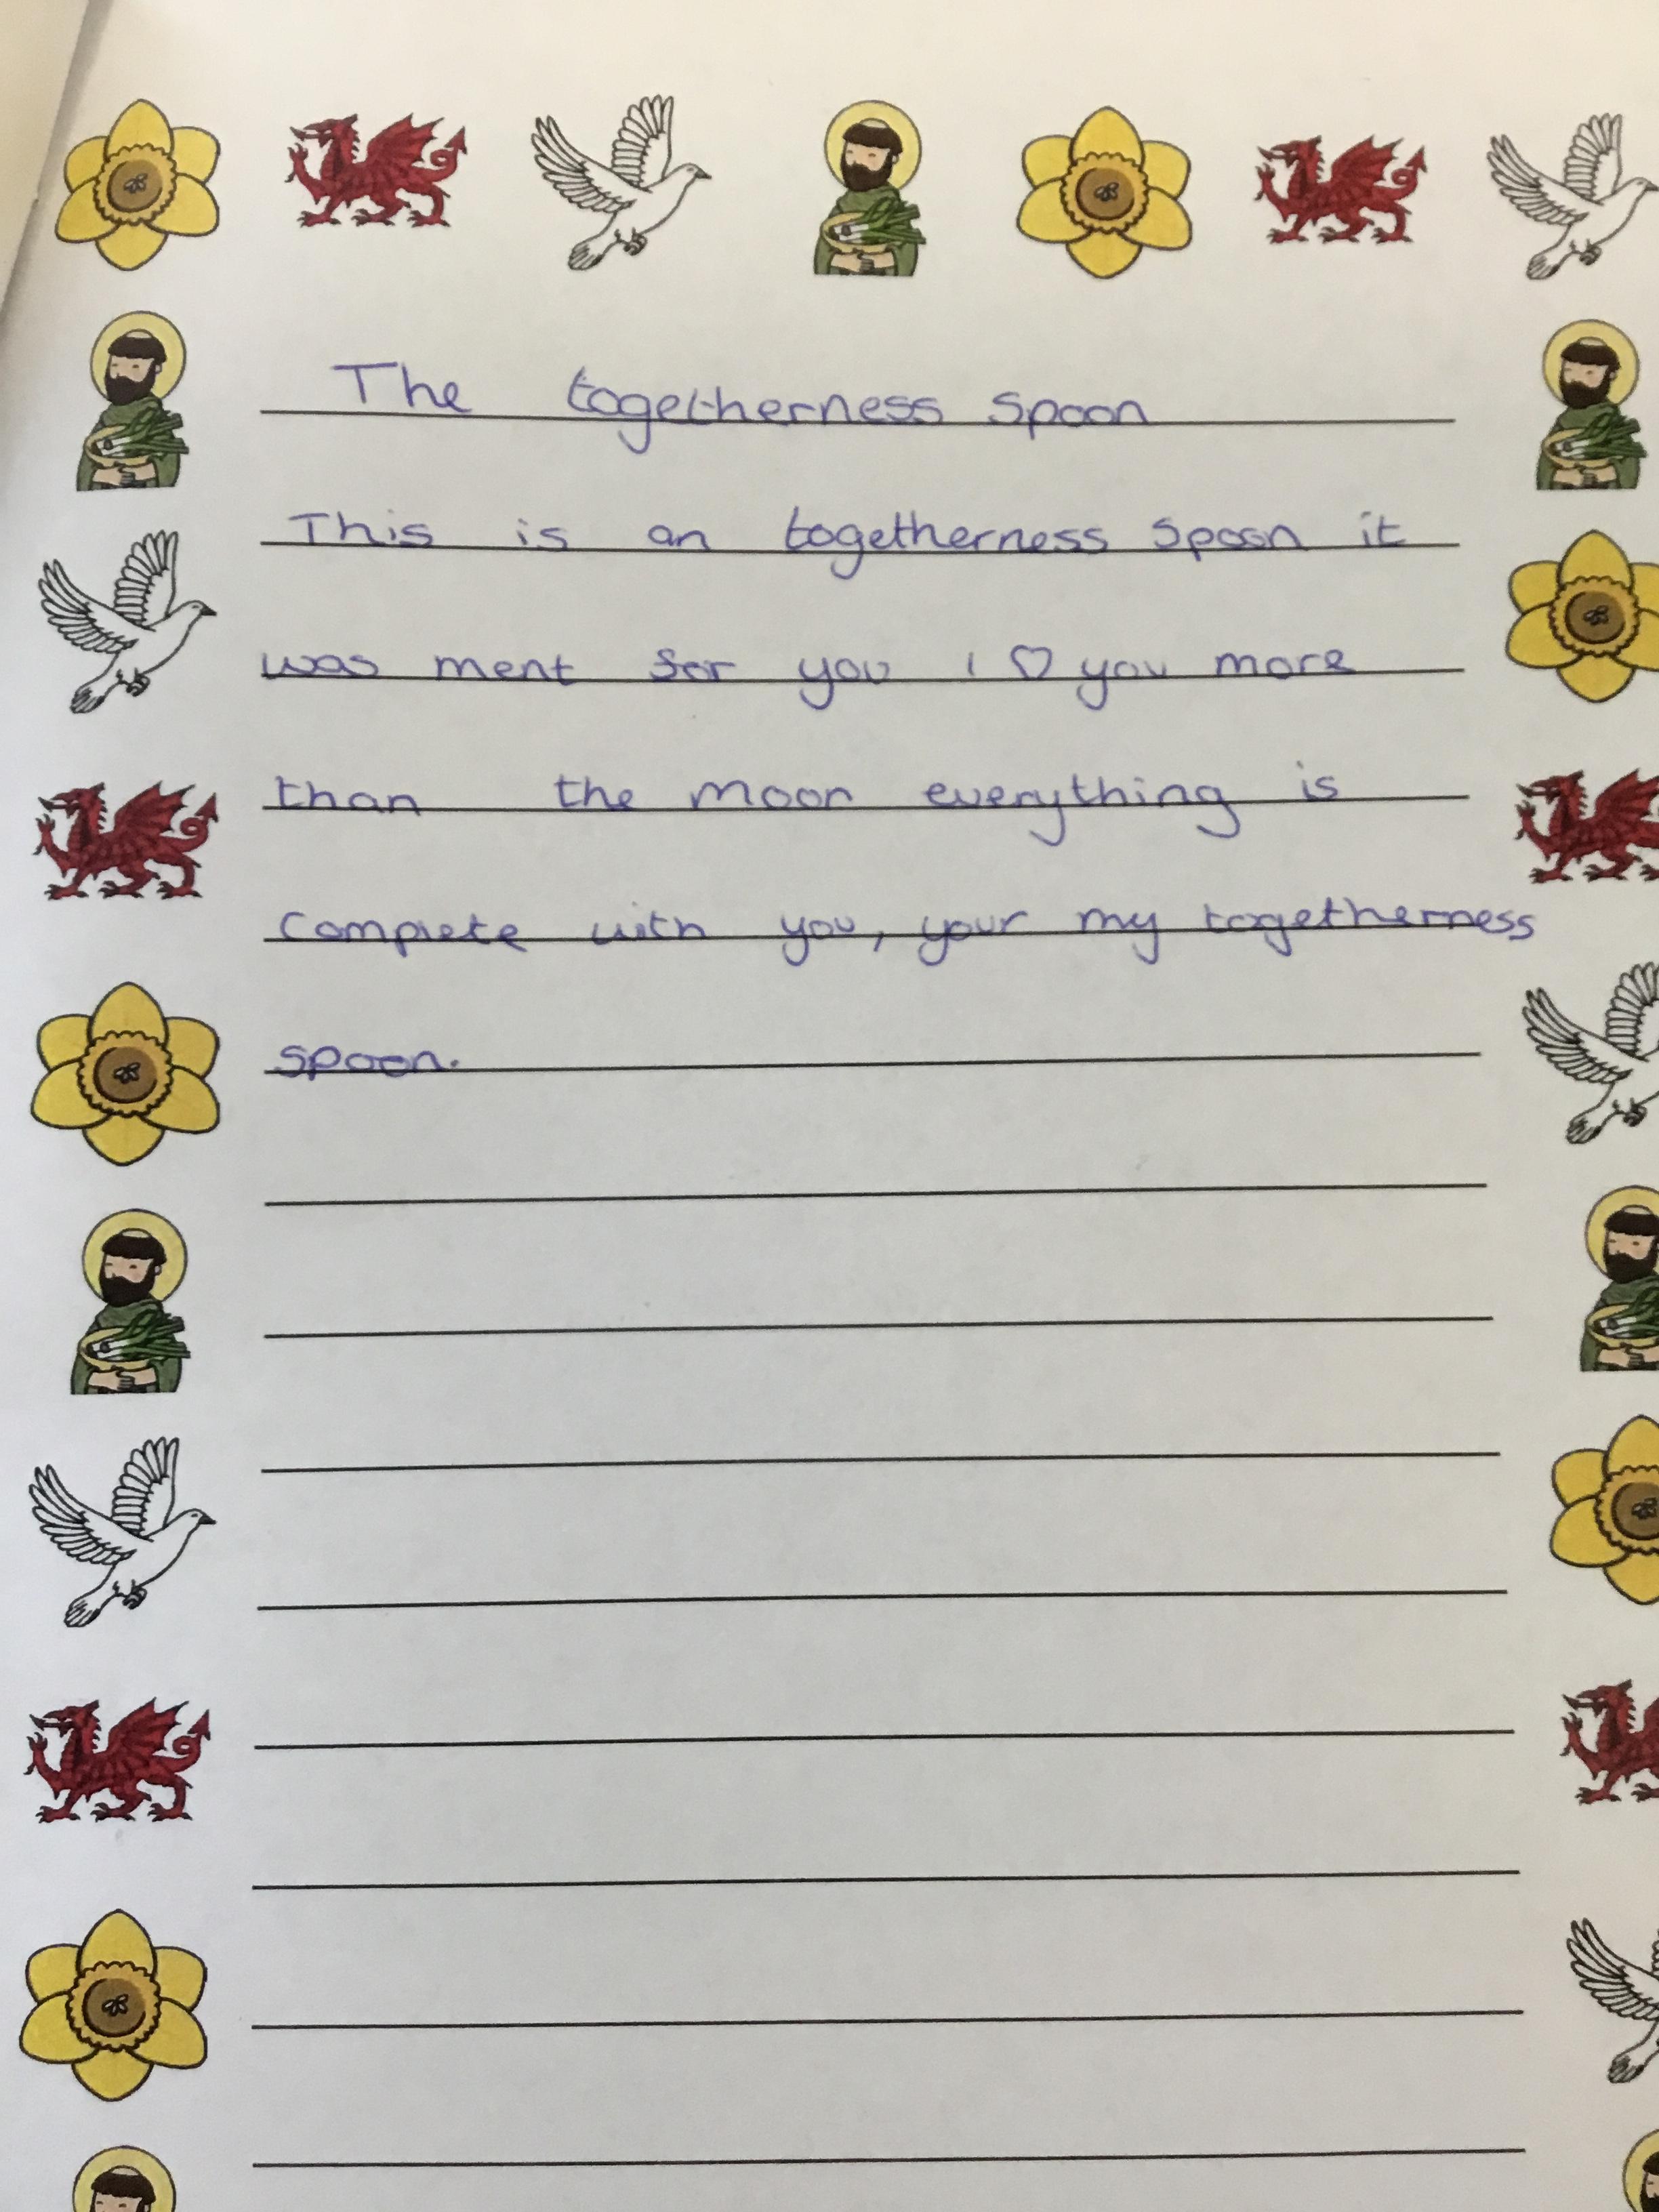 The togetherness spoon
This is an togetherness spoon it
was ment for you I ♡ you more
than the moon everything is
Complete with you, your my togetherness
spoon.